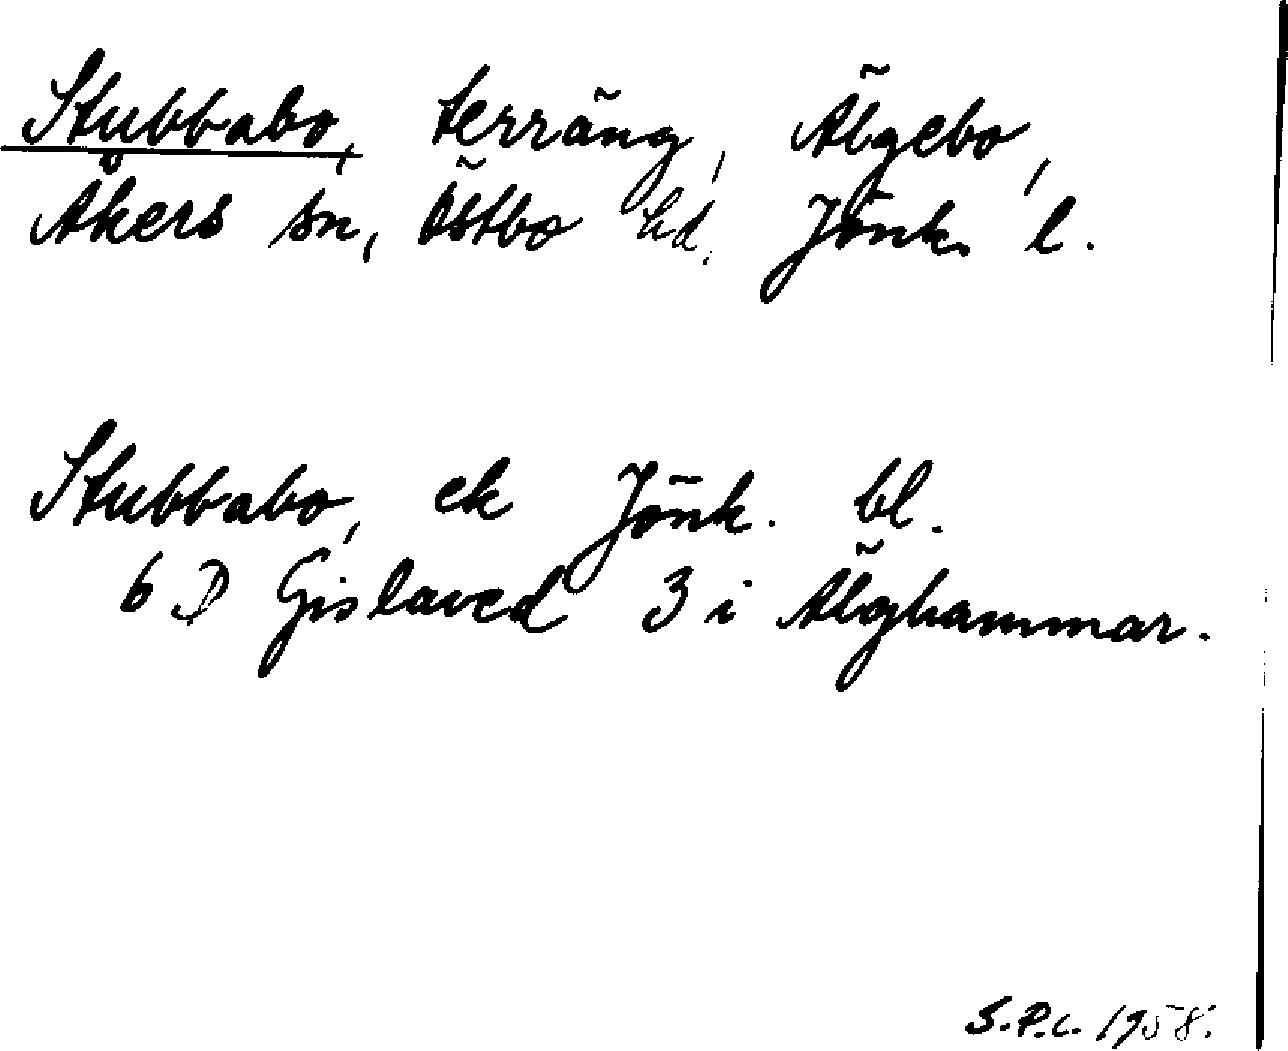 Stubbabo, terräng, Älgebo,
Åkers sn, Östbo hd, Jönk. l.
Stubbabo, ek Jönk. bl.
6 D Gislaved 3 i Älghammar.
S.P.C. 1958.